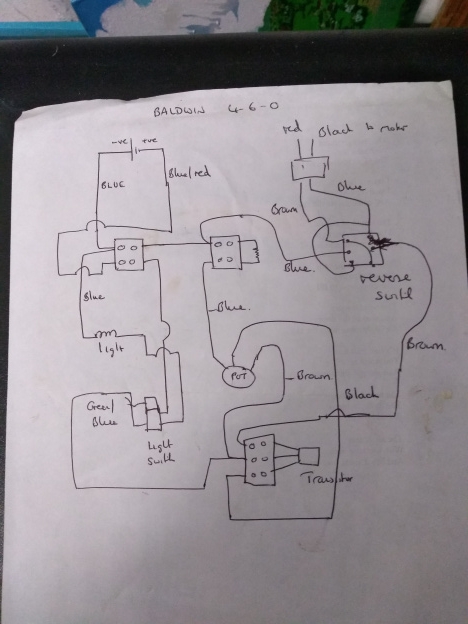 BALDWIN 4-6-0
-ve +ve
red Black to motor
Blue/red
BLUE
Blue
Brown
Blue.
reverse
switch
Blue
Blue.
light
Brown.
POT
Brown
Black
Green/
Blue
light
switch
Transistor